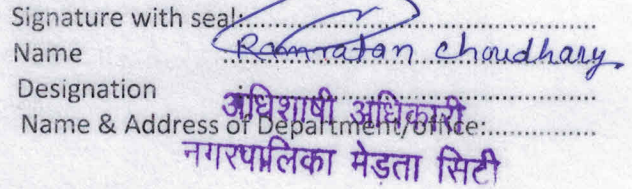 Signature with seal:..............................................
Name Ramratan Choudhary
Designation :..............................................
अधिशाषी अधिकारी
Name & Address of Department/office:.................
नगरपालिका मेड़ता सिटी